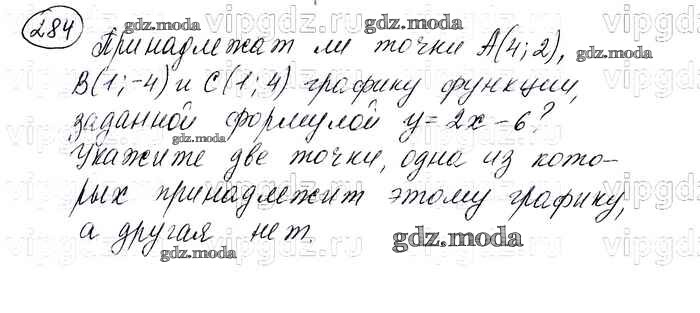 284
Принадлежат ли точки A(4;2),
B(1;-4) и C(1;4) графику функции,
заданной формулой y=2x-6?
Укажите две точки, одна из кото-
рых принадлежит этому графику,
а другая нет.
gdz.moda
gdz.moda
gdz.moda
gdz.moda
gdz.moda
gdz.moda
gdz.moda
vipgdz.ru
vipgdz.ru
vipgdz.ru
vipgdz.ru